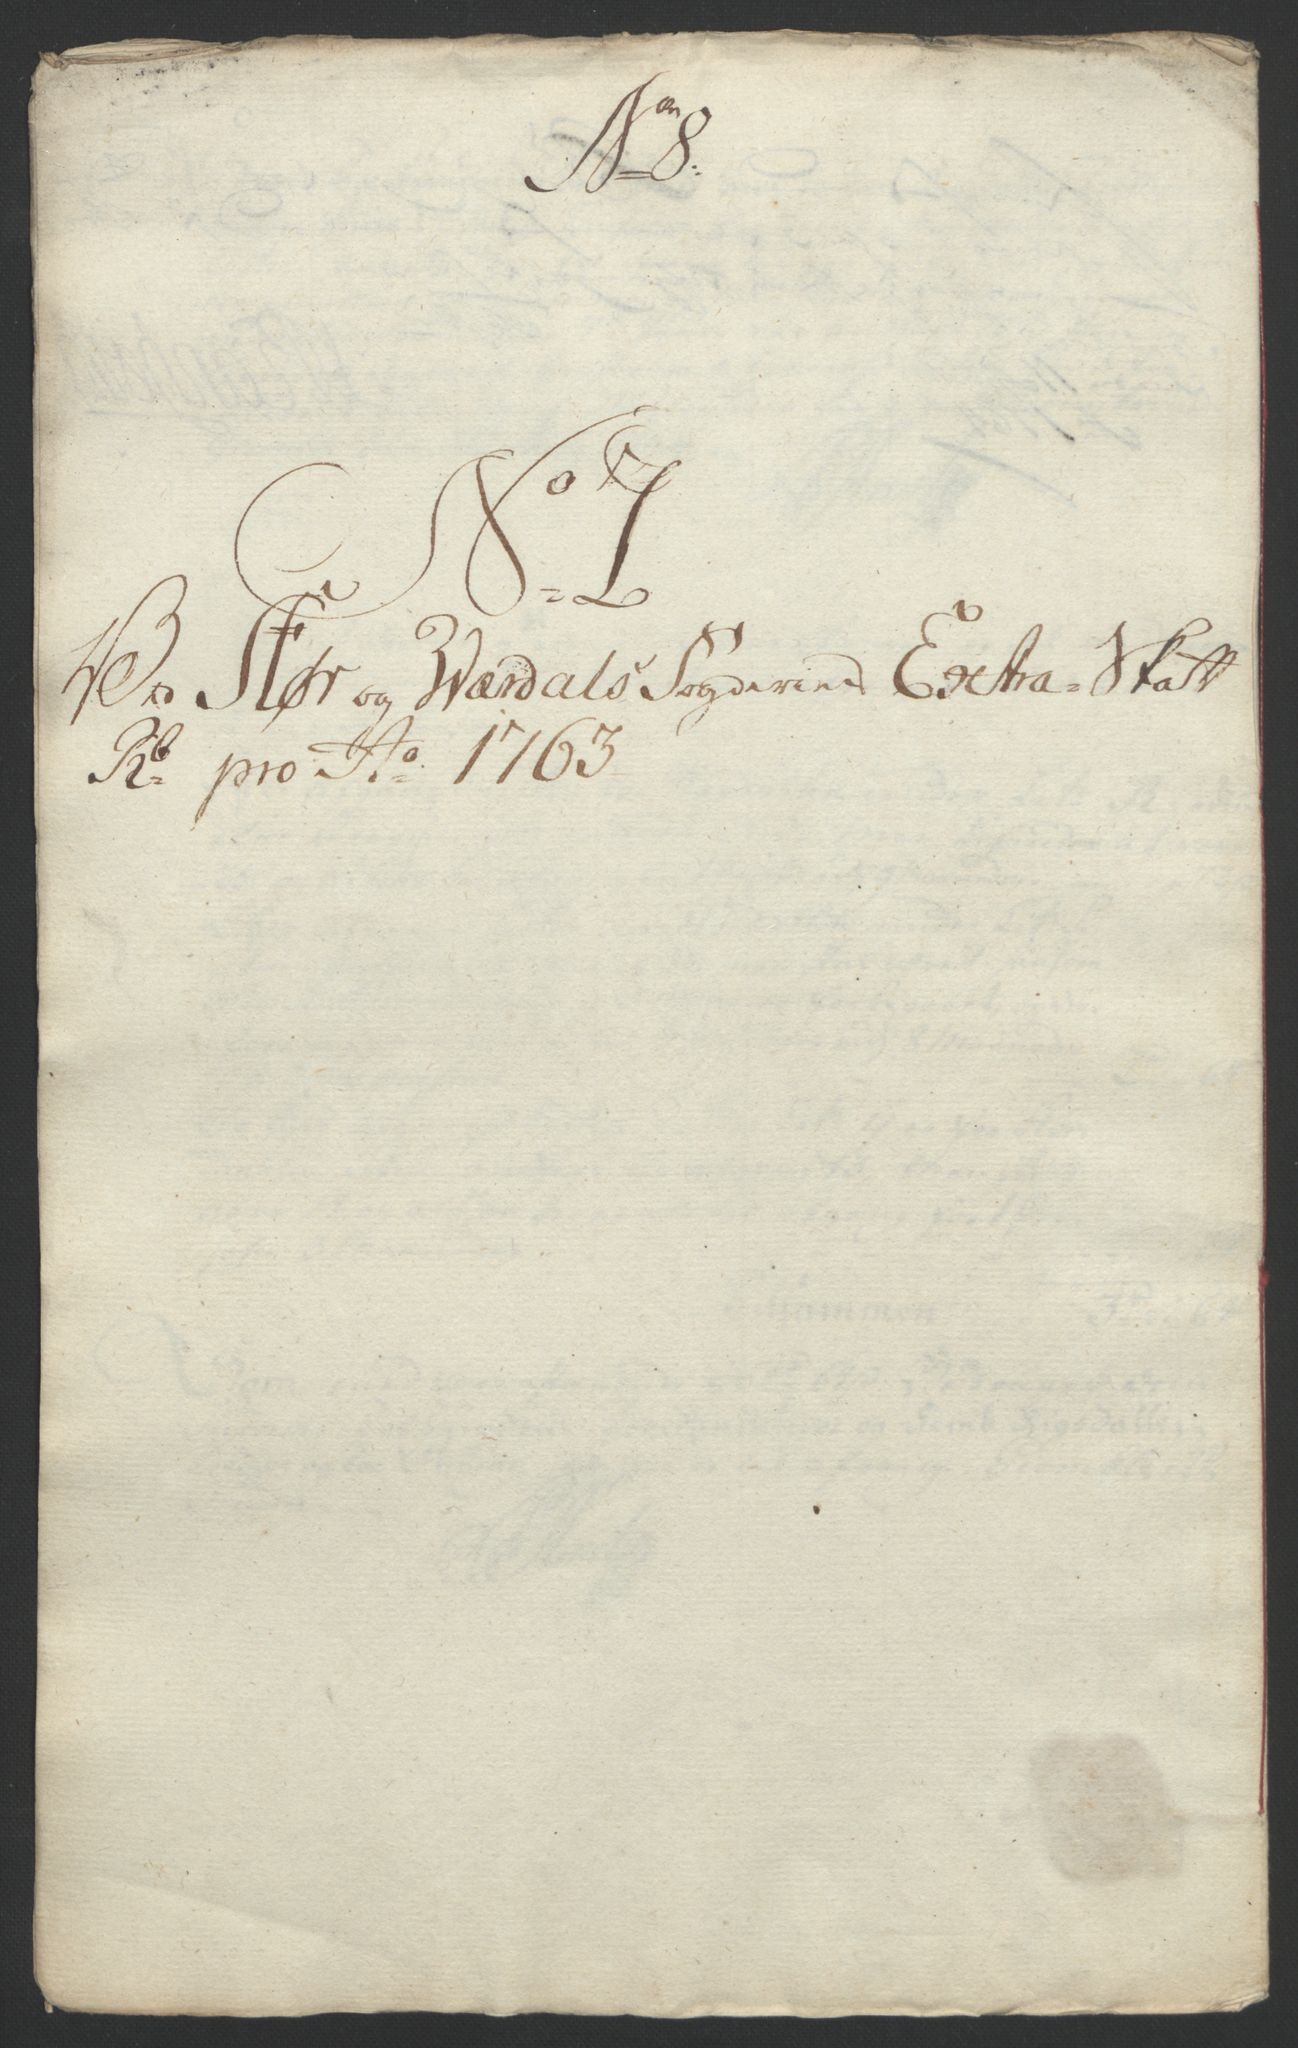 No 8.
No 1
Stør og Værdals Fogderies Extra-Skatt
Rb pro Ao 1763